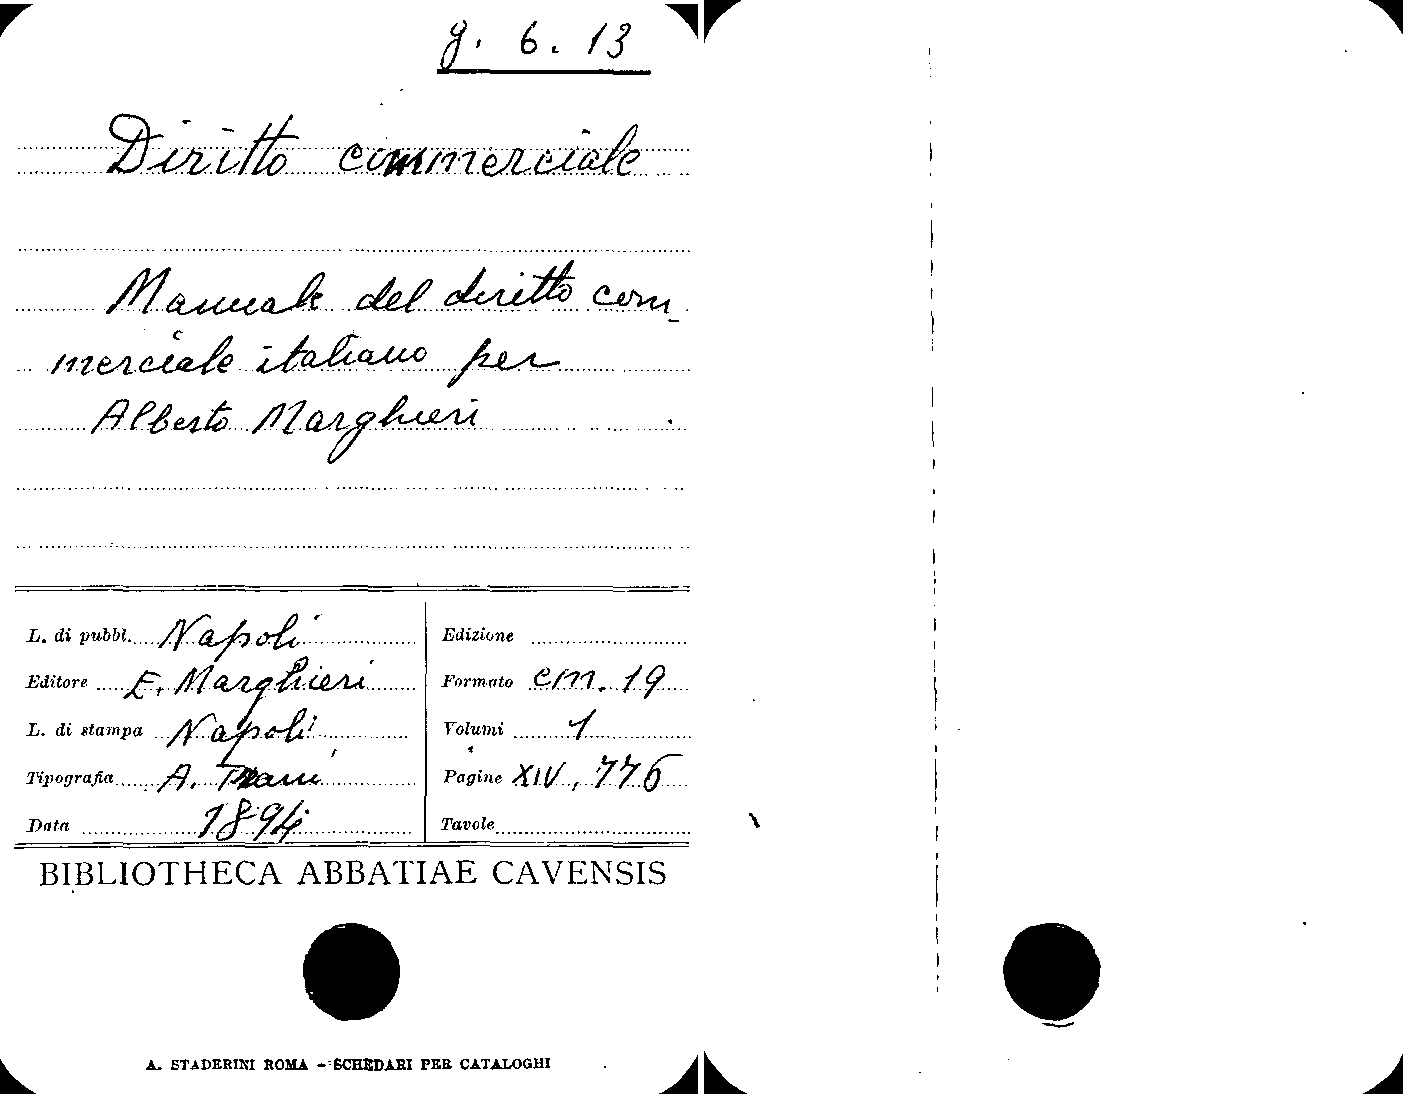 g. 6. 13
Diritto commerciale
Manuale del diritto com-
merciale italiano per
Alberto Marghieri
L. di pubbl. Napoli
Editore E. Marghieri
L. di stampa Napoli
Tipografia A. Trani
Data 1894
Edizione
Formato cm. 19
Volumi 1
Pagine XIV, 776
Tavole
BIBLIOTHECA ABBATIAE CAVENSIS
A. STADERINI ROMA - SCHEDARI PER CATALOGHI